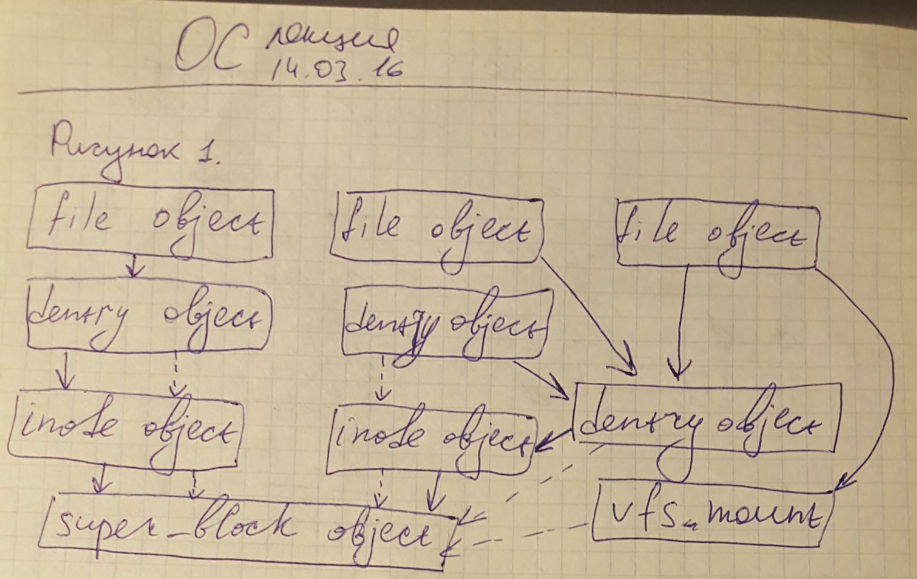 ОС лекция
14.03.16
Рисунок 1.
file object file object file object
dentry object dentry object
inode object inode object dentry object
super_block object vfs_mount